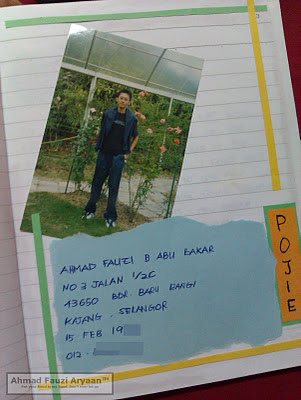 AHMAD FAUZI B ABU BAKAR
NO 3 JALAN 1/2C
43650 BDR. BARU BANGI
KAJANG. SELANGOR
15 FEB 19
012 -
POJIE
Ahmad Fauzi Aryaan™